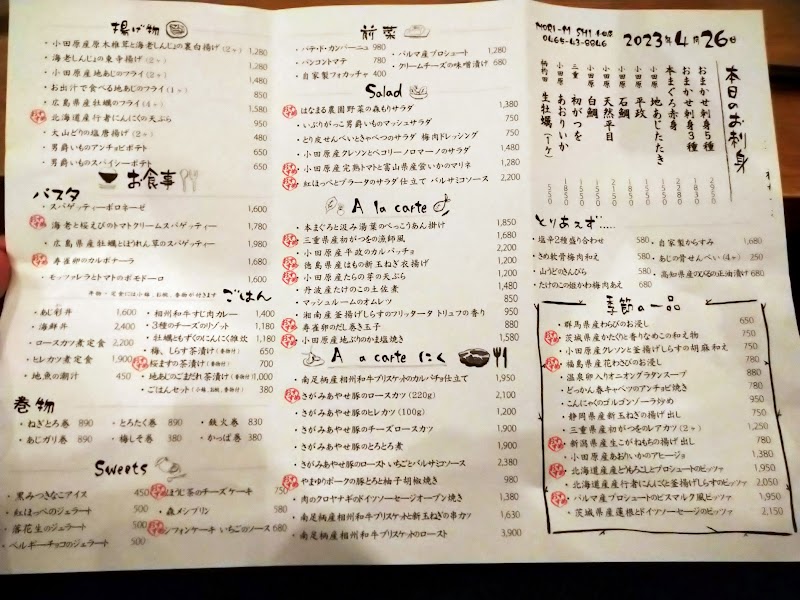 揚げ物
・小田原産原木椎茸と海老しんじょの裏白揚げ(2ヶ) 1,280
・海老しんじょの東寺揚げ(2ヶ) 1,280
・小田原産地あじのフライ(2ヶ) 1,480
・お出汁で食べる地あじのフライ(1ヶ) 850
・広島県産牡蠣のフライ(4ヶ) 1,580
・北海道産行者にんにくの天ぷら 950
・大山どりの塩唐揚げ(2ヶ) 480
・男爵いものアンチョビポテト 680
・男爵いものスパイシーポテト 650
お食事
パスタ
・スパゲッティーボロネーゼ 1,600
・海老と桜えびのトマトクリームスパゲッティー 1,780
・広島県産牡蠣とほうれん草のスパゲッティー 1,980
・寿雀卵のカルボナーラ 1,680
・モッツァレラとトマトのポモドーロ 1,600
ごはん
・あじ彩丼 1,600
・海鮮丼 2,400
・ロースカツ煮定食 2,200
・ヒレカツ煮定食 1,900
・地魚の潮汁 450
・相州和牛すじ肉カレー 1,400
・3種のチーズのリゾット 1,180
・牡蠣ともずくのにんにく雑炊 1,180
・梅、しらす茶漬け(香物付) 650
・桜ますの茶漬け(香物付) 700
・地あじのごまだれ茶漬け(香物付) 1,000
・ごはんセット(小鉢、お椀、香物付) 380
巻物
・ねぎとろ巻 890
・とろたく巻 890
・鉄火巻 830
・あじガリ巻 890
・梅しそ巻 380
・かっぱ巻 380
Sweets
・黒みつきなこアイス 450
・紅ほっぺのジェラート 500
・落花生のジェラート 500
・ベルギーチョコのジェラート 500
・ほうじ茶のチーズケーキ 750
・森メシプリン 580
・シフォンケーキ いちごのソース 680
前菜
・パテ・ド・カンパーニュ 980
・パンコントマテ 780
・自家製フォカッチャ 400
・パルマ産プロシュート 1,280
・クリームチーズの味噌漬け 680
Salad
・はなまる農園野菜の森もりサラダ 1,380
・いぶりがっこ男爵いものマッシュサラダ 780
・とり皮せんべいときゃべつのサラダ 梅肉ドレッシング 750
・小田原産クレソンとペコリーノロマーノのサラダ 1,480
・小田原産完熟トマトと富山県産蛍いかのマリネ 1,280
・紅ほっぺとブラータのサラダ仕立て バルサミコソース 2,200
A la carte
・本まぐろと汲み湯葉のべっこうあん掛け 1,850
・三重県産初がつをの漁師風 1,680
・小田原産平政のカルパッチョ 2,200
・徳島県産はもの新玉ねぎ衣揚げ 2,200
・小田原産たらの芽の天ぷら 1,200
・丹波産たけのこの土佐煮 1,480
・マッシュルームのオムレツ 850
・湘南産釜揚げしらすのフリッタータ トリュフの香り 950
・寿雀卵のだし巻き玉子 880
・小田原産地ぶりのかま塩焼き 1,580
A la carte にく
・南足柄産相州和牛ブリスケットのカルパチョ仕立て 1,950
・さがみあやせ豚のロースカツ(220g) 2,100
・さがみあやせ豚のヒレカツ(100g) 1,200
・さがみあやせ豚のチーズロースカツ 1,900
・さがみあやせ豚のとろとろ煮 1,900
・さがみあやせ豚のロースト いちごとバルサミコソース 2,380
・やまゆりポークの豚とろと柚子胡椒焼き 980
・肉のクロヤナギのドイツソーセージオーブン焼き 1,380
・南足柄産相州和牛ブリスケットと新玉ねぎの串カツ 1,630
・南足柄産相州和牛ブリスケットのロースト 3,900
MORI-MESHI 小田原
0465-43-8846
2023年4月26日
本日のお刺身
おまかせ刺身5種 2950
おまかせ刺身3種 2280
本まぐろ赤身
小田原 地あじたたき
小田原 平政
小田原 石鯛
小田原 天然平目
小田原 白鯛
三重 初がつを
小田原 あおりいか 1850
生牡蠣(1ヶ) 550
とりあえず……
・塩辛2種盛り合わせ 580
・さめ軟骨梅肉和え 580
・山うどのきんぴら 580
・たけのこの姫かわ梅肉あえ 680
・自家製からすみ 1,680
・あじの骨せんべい(4ヶ) 250
・高知県産のびるの正油漬け 680
季節の一品
・群馬県産わらびのお浸し 650
・茨城県産かたのりと香りなめこの和え物 750
・小田原産クレソンと釜揚げしらすの胡麻和え 750
・福島県産花わさびのお浸し 780
・温泉卵入りオニオングラタンスープ 880
・どっかん春キャベツのアンチョビ焼き 780
・こんにゃくのゴルゴンゾーラ炒め 950
・静岡県産新玉ねぎの揚げ出し 750
・三重県産初がつをのレアカツ(2ヶ) 1,250
・新潟県産生こがねもちの揚げ出し 780
・小田原産あおりいかのアヒージョ 1,380
・北海道産産どうもろことプロシュートのピッツァ 1,950
・北海道産産行者にんにくと釜揚げしらすのピッツァ 2,050
・パルマ産プロシュートのビスマルク風ピッツァ 1,950
・茨城県産蓮根とドイツソーセージのピッツァ 2,150